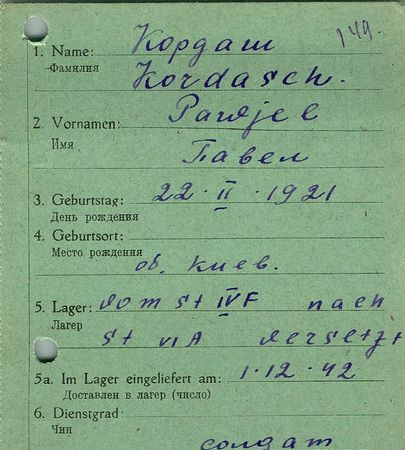 149.
1. Name: Кордаш
Фамилия Kordasch.
2. Vornamen: Pawjel
Имя Павел
3. Geburtstag: 22. II. 1921
День рождения
4. Geburtsort:
Место рождения об. Киев.
5. Lager: vom St IV F nach
Лагер St VI A versetzt
5a. Im Lager eingeliefert am: 1.12.42
Доставлен в лагер (число)
6. Dienstgrad:
Чин
солдат